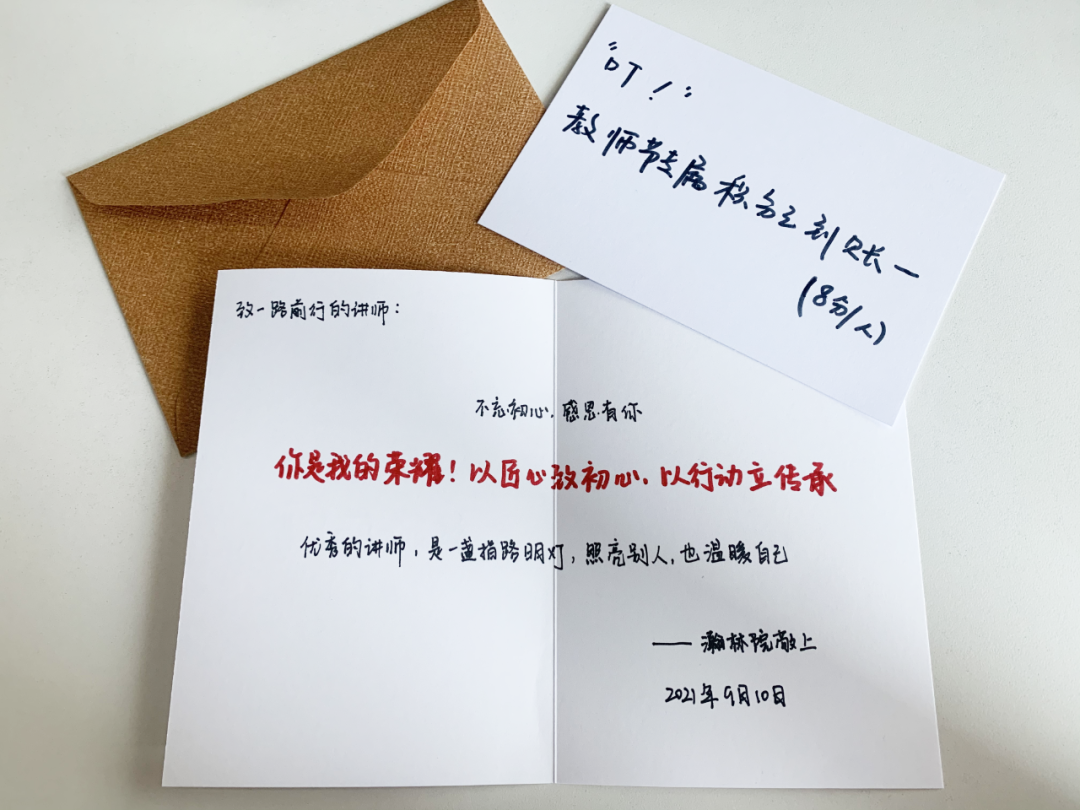 "叮！"
教师节专属积分已到账—
(8分/人)
致一路前行的讲师：
不忘初心，感恩有你
你是我的荣耀！以匠心致初心，以行动立传承
优秀的讲师，是一盏指路明灯，照亮别人，也温暖自己
——瀚林院敬上
2021年9月10日